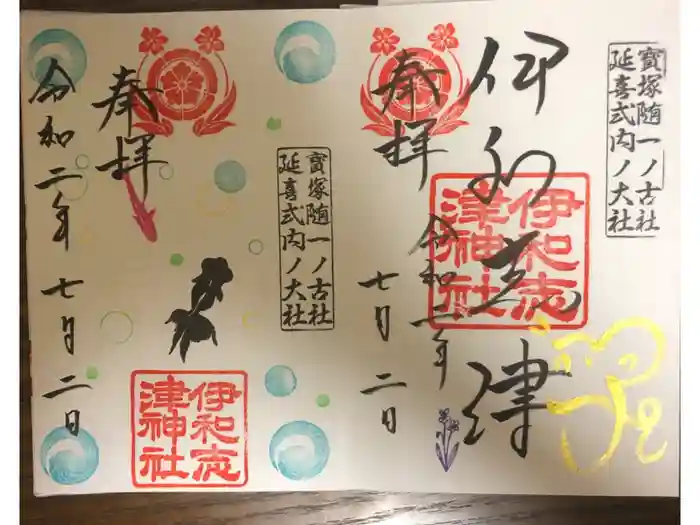 寳塚随一ノ古社
延喜式内ノ大社
伊和志津
伊和志
津神社
奉拝
令和二年
七月二日
寳塚随一ノ古社
延喜式内ノ大社
伊和志
津神社
奉拝
令和二年七月二日